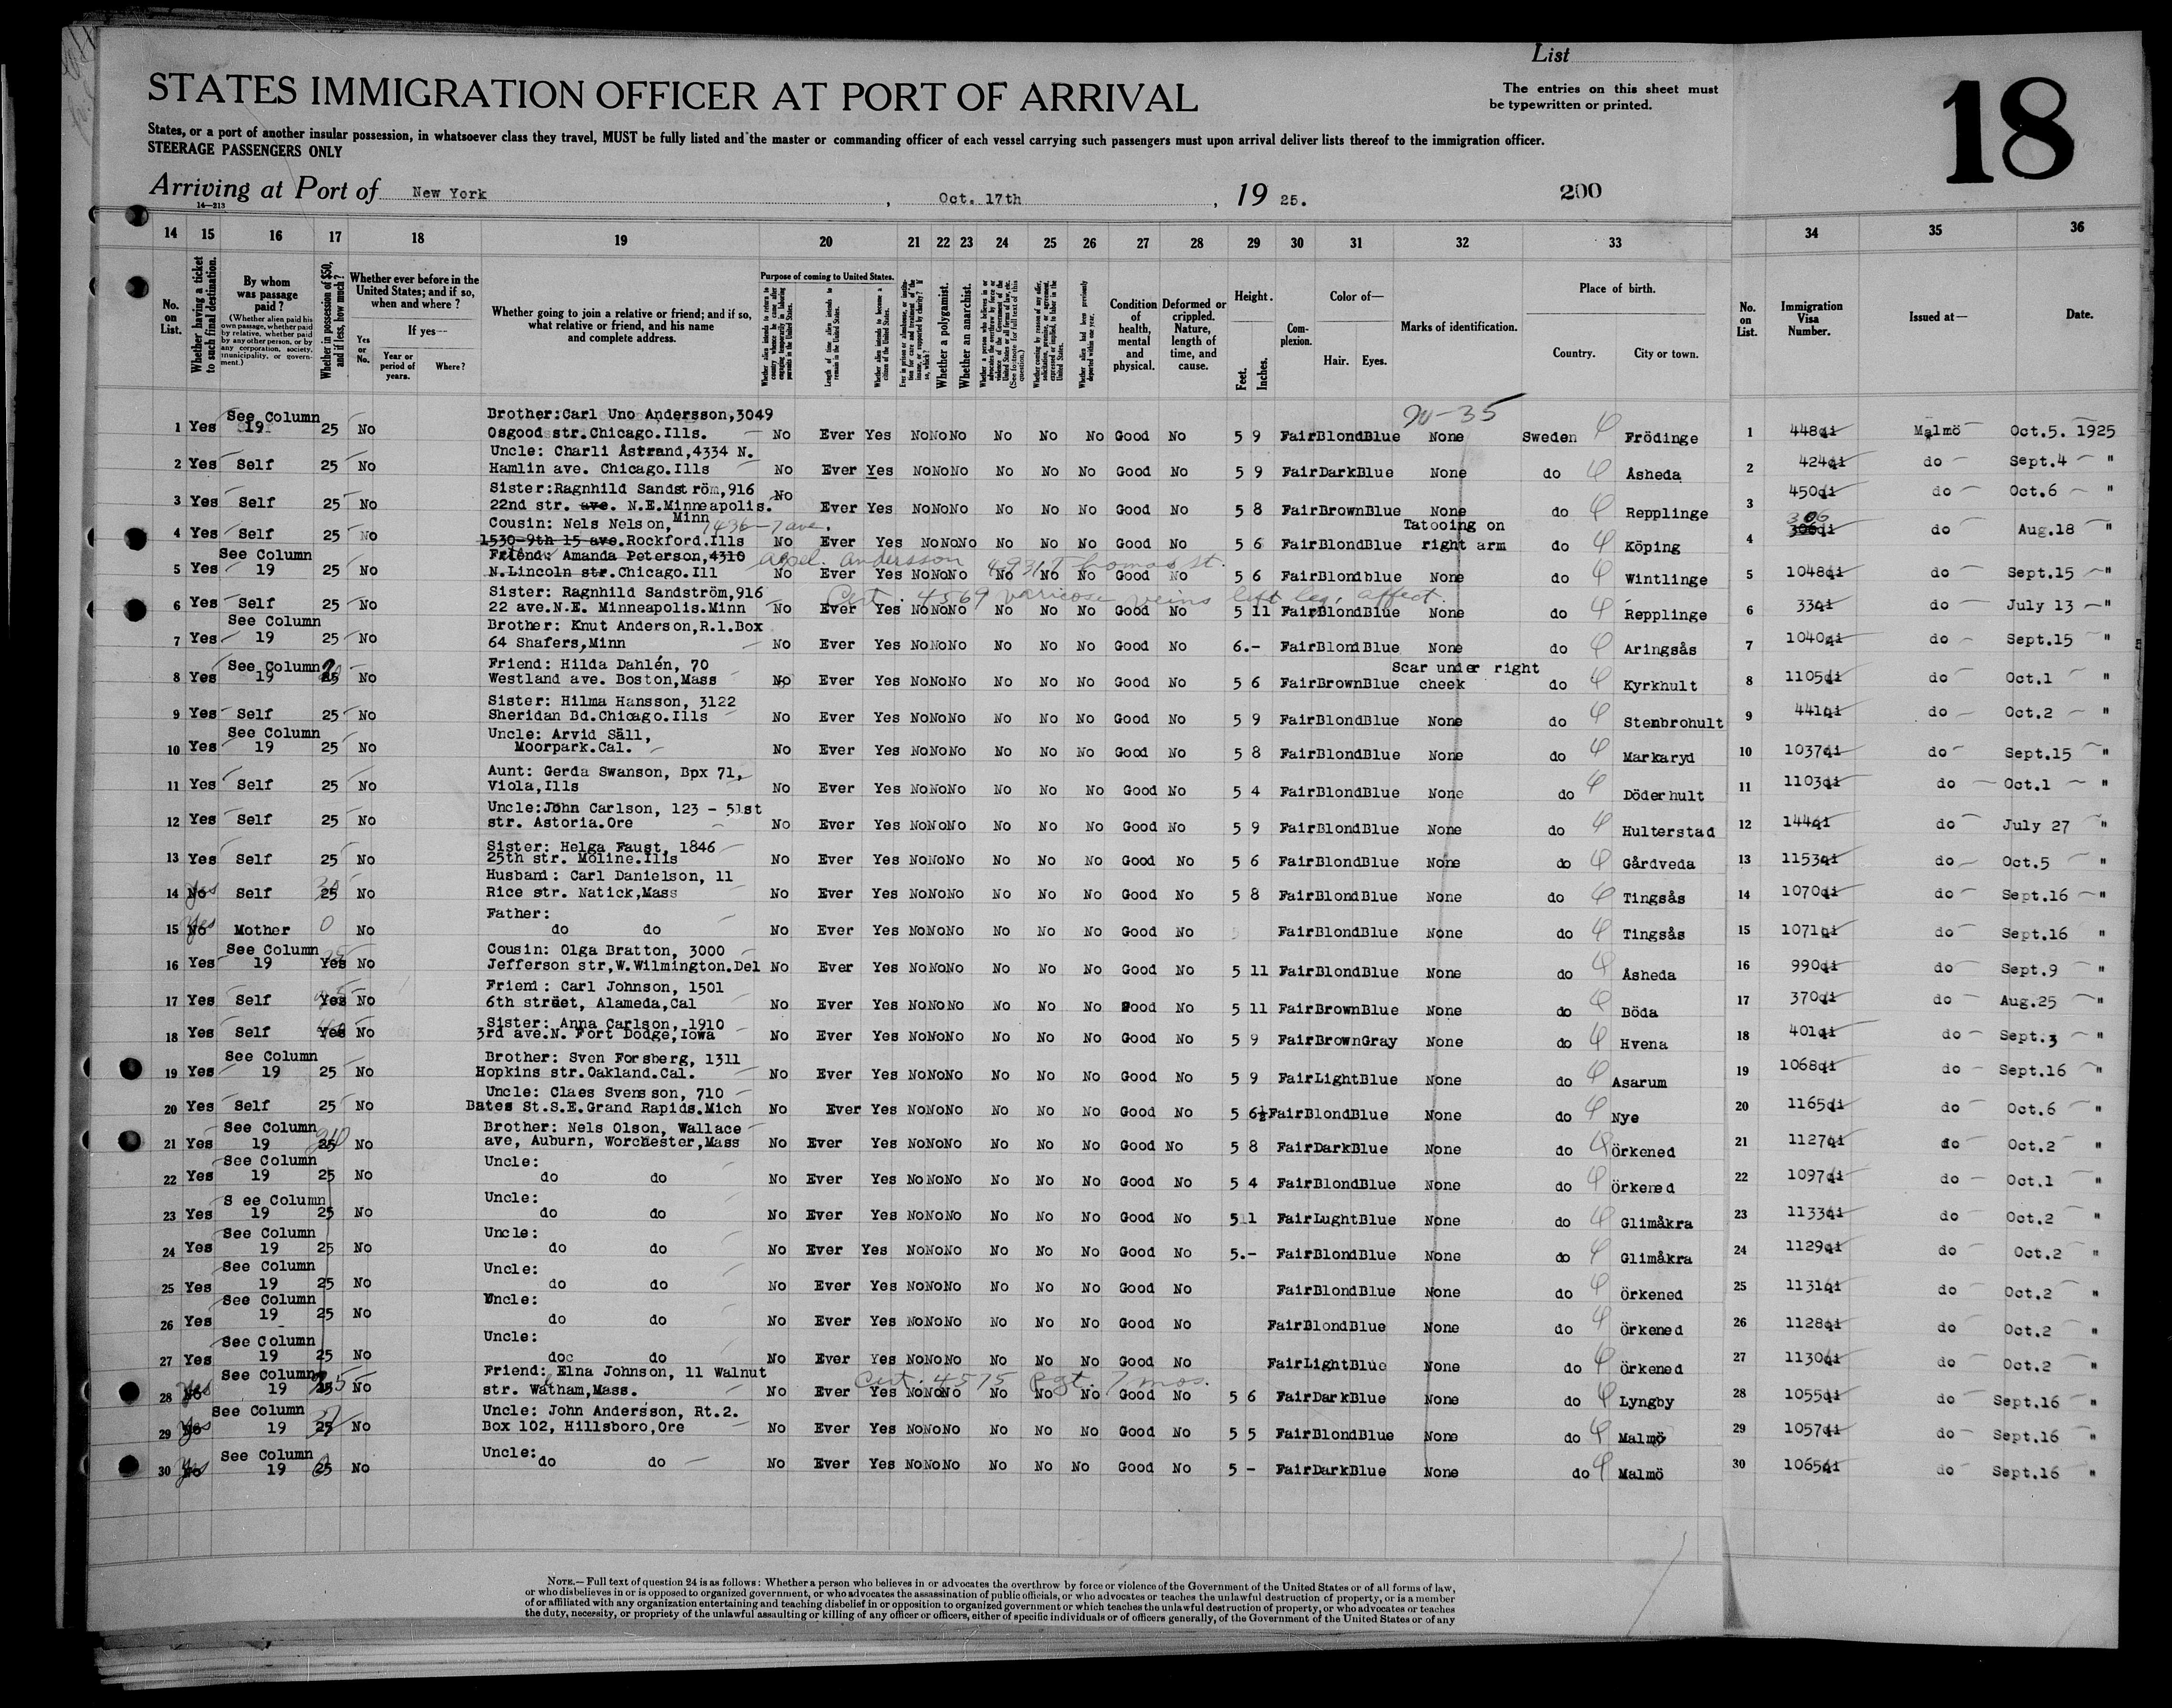 List
STATES IMMIGRATION OFFICER AT PORT OF ARRIVAL
The entries on this sheet must
be typewritten or printed.
18
States, or a port of another insular possession, in whatsoever class they travel, MUST be fully listed and the master or commanding officer of each vessel carrying such passengers must upon arrival deliver lists thereof to the immigration officer.
STEERAGE PASSENGERS ONLY
Arriving at Port of New York, Oct. 17th, 19 25.
200
14—213
14 15 16 17 18 19 20 21 22 23 24 25 26 27 28 29 30 31 32 33 34 35 36
No. on List.
Whether having a ticket to such final destination.
By whom was passage paid?
(Whether alien paid his own passage, whether paid by relative, whether paid by any other person, or by any corporation, society, municipality, or government.)
Whether in possession of $50, and if less, how much?
Whether ever before in the United States; and if so, when and where?
Yes or No.
If yes—
Year or period of years.
Where?
Whether going to join a relative or friend; and if so, what relative or friend, and his name and complete address.
Purpose of coming to United States.
Length of time alien intends to remain in the United States.
Whether alien intends to become a citizen of the United States.
Whether a polygamist.
Whether an anarchist.
Condition of health, mental and physical.
Deformed or crippled. Nature, length of time, and cause.
Height.
Feet. Inches.
Complexion.
Color of—
Hair. Eyes.
Marks of identification.
Place of birth.
Country. City or town.
No. on List.
Immigration Visa Number.
Issued at—
Date.
1 Yes See Column 19 25 No Brother:Carl Uno Andersson,3049 Osgood str.Chicago.Ills. No Ever Yes No No No No No No Good No 5 9 Fair Blond Blue None Sweden Frödinge 1 448qi Malmö Oct.5. 1925
2 Yes Self 25 No Uncle: Charli Astrand,4334 N. Hamlin ave. Chicago.Ills No Ever Yes No No No No No No Good No 5 9 Fair Dark Blue None do Åsheda 2 424qi do Sept.4 "
3 Yes Self 25 No Sister:Ragnhild Sandström,916 22nd str. ave. N.E.Minneapolis. Minn No Ever Yes No No No No No No Good No 5 8 Fair Brown Blue None do Repplinge 3 450qi do Oct.6 "
4 Yes Self 25 No Cousin: Nels Nelson, 1436-7 ave. 1530-9th 15 ave.Rockford.Ills No Ever Yes No No No No No No Good No 5 6 Fair Blond Blue Tatooing on right arm do Köping 4 306qi do Aug.18 "
5 Yes See Column 19 25 No Friend: Amanda Peterson,4310 N.Lincoln str.Chicago.Ill No Ever Yes No No No No No No Good No 5 6 Fair Blond blue None do Wintlinge 5 1048qi do Sept.15 "
6 Yes Self 25 No Sister: Ragnhild Sandström,916 22 ave.N.E. Minneapolis.Minn No Ever Yes No No No No No No Good No 5 11 Fair Blond Blue None do Repplinge 6 33qi do July 13 "
Cert. 4569 varicose veins left leg, affect.
7 Yes See Column 19 25 No Brother: Knut Anderson,R.1.Box 64 Shafers,Minn No Ever Yes No No No No No No Good No 6.- Fair Blond Blue None do Aringsås 7 1040qi do Sept.15 "
8 Yes See Column 19 25 No Friend: Hilda Dahlén, 70 Westland ave. Boston,Mass No Ever Yes No No No No No No Good No 5 6 Fair Brown Blue Scar under right cheek do Kyrkhult 8 1105qi do Oct.1 "
9 Yes Self 25 No Sister: Hilma Hansson, 3122 Sheridan Bd.Chicago.Ills No Ever Yes No No No No No No Good No 5 9 Fair Blond Blue None do Stenbrohult 9 441qi do Oct.2 "
10 Yes See Column 19 25 No Uncle: Arvid Säll, Moorpark.Cal. No Ever Yes No No No No No No Good No 5 8 Fair Blond Blue None do Markaryd 10 1037qi do Sept.15 "
11 Yes Self 25 No Aunt: Gerda Swanson, Bpx 71, Viola,Ills No Ever Yes No No No No No No Good No 5 4 Fair Blond Blue None do Döderhult 11 1103qi do Oct.1 "
12 Yes Self 25 No Uncle:John Carlson, 123 - 51st str. Astoria.Ore No Ever Yes No No No No No No Good No 5 9 Fair Blond Blue None do Hulterstad 12 144qi do July 27 "
13 Yes Self 25 No Sister: Helga Faust, 1846 25th str. Moline.Ills No Ever Yes No No No No No No Good No 5 6 Fair Blond Blue None do Gårdveda 13 1153qi do Oct.5 "
14 No Yes Self 25 No Husband: Carl Danielson, 11 Rice str. Natick,Mass No Ever Yes No No No No No No Good No 5 8 Fair Blond Blue None do Tingsås 14 1070qi do Sept.16 "
15 No Yes Mother 0 No Father: do do No Ever Yes No No No No No No Good No Fair Blond Blue None do Tingsås 15 1071qi do Sept.16 "
16 Yes See Column 19 Yes No Cousin: Olga Bratton, 3000 Jefferson str,W.Wilmington.Del No Ever Yes No No No No No No Good No 5 11 Fair Blond Blue None do Åsheda 16 990qi do Sept.9 "
17 Yes Self Yes No Friend: Carl Johnson, 1501 6th street, Alameda,Cal No Ever Yes No No No No No No Good No 5 11 Fair Brown Blue None do Böda 17 370qi do Aug.25 "
18 Yes Self Yes No Sister: Anna Carlson, 1910 3rd ave.N. Fort Dodge,Iowa No Ever Yes No No No No No No Good No 5 9 Fair Brown Gray None do Hvena 18 401qi do Sept.3 "
19 Yes See Column 19 25 No Brother: Sven Forsberg, 1311 Hopkins str.Oakland.Cal. No Ever Yes No No No No No No Good No 5 9 Fair Light Blue None do Asarum 19 1068qi do Sept.16 "
20 Yes Self 25 No Uncle: Claes Svensson, 710 Bates St.S.E.Grand Rapids.Mich No Ever Yes No No No No No No Good No 5 6½ Fair Blond Blue None do Nye 20 1165qi do Oct.6 "
21 Yes See Column 19 25 No Brother: Nels Olson, Wallace ave, Auburn, Worchester,Mass No Ever Yes No No No No No No Good No 5 8 Fair Dark Blue None do Örkened 21 1127qi do Oct.2 "
22 Yes See Column 19 25 No Uncle: do do No Ever Yes No No No No No No Good No 5 4 Fair Blond Blue None do Örkened 22 1097qi do Oct.1 "
23 Yes S ee Column 19 25 No Uncle: do do No Ever Yes No No No No No No Good No 5 1 Fair Lught Blue None do Glimåkra 23 1133qi do Oct.2 "
24 Yes See Column 19 25 No Uncle: do do No Ever Yes No No No No No No Good No 5.- Fair Blond Blue None do Glimåkra 24 1129qi do Oct.2 "
25 Yes See Column 19 25 No Uncle: do do No Ever Yes No No No No No No Good No Fair Blond Blue None do Örkened 25 1131qi do Oct.2 "
26 Yes See Column 19 25 No Uncle: do do No Ever Yes No No No No No No Good No Fair Blond Blue None do Örkened 26 1128qi do Oct.2 "
27 Yes See Column 19 25 No Uncle: do do No Ever Yes No No No No No No Good No Fair Light Blue None do Örkened 27 1130qi do Oct.2 "
28 No Yes See Column 19 25 No Friend: Elna Johnson, 11 Walnut str. Watham,Mass. No Ever Yes No No No No No No Good No 5 6 Fair Dark Blue None do Lyngby 28 1055qi do Sept.16 "
Cert. 4575 Pgt. 7 mos.
29 No Yes See Column 19 25 No Uncle: John Andersson, Rt.2. Box 102, Hillsboro,Ore No Ever Yes No No No No No No Good No 5 5 Fair Blond Blue None do Malmö 29 1057qi do Sept.16 "
30 No Yes See Column 19 25 No Uncle: do do No Ever Yes No No No No No No Good No 5 - Fair Dark Blue None do Malmö 30 1065qi do Sept.16 "
NOTE.—Full text of question 24 is as follows: Whether a person who believes in or advocates the overthrow by force or violence of the Government of the United States or of all forms of law,
or who disbelieves in or is opposed to organized government, or who advocates the assassination of public officials, or who advocates or teaches the unlawful destruction of property, or is a member
of or affiliated with any organization entertaining and teaching disbelief in or opposition to organized government or which teaches the unlawful destruction of property, or who advocates or teaches
the duty, necessity, or propriety of the unlawful assaulting or killing of any officer or officers, either of specific individuals or of officers generally, of the Government of the United States or of any